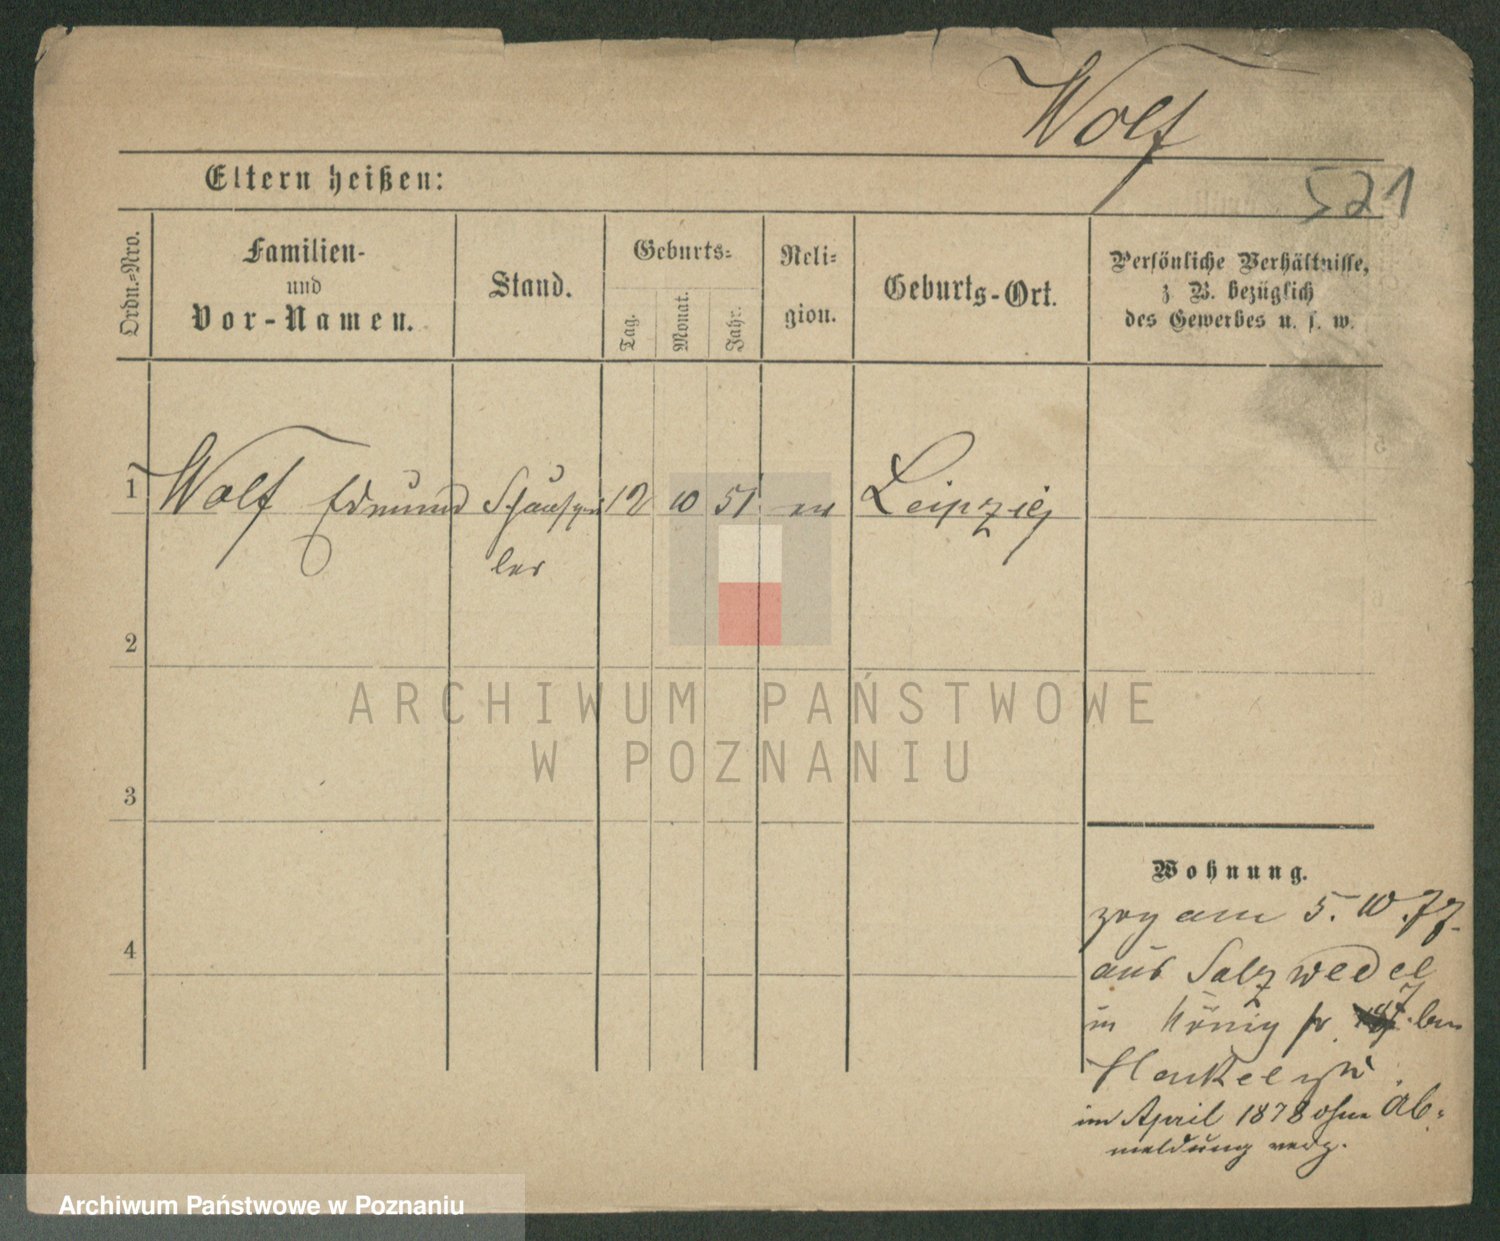 Wolf
521
Eltern heißen:
Ordn.-Nro.
Familien-
und
Vor-Namen.
Stand.
Geburts-
Tag.
Monat.
Jahr.
Reli-
gion.
Geburts-Ort.
Persönliche Verhältnisse,
z B. bezüglich
des Gewerbes u. s. w.
1 Wolf Edmund Schauspie 12 10 51 ev Leipzig
ler
2
3
4
ARCHIWUM PAŃSTWOWE
W POZNANIU
Wohnung.
zog am 5. 10. 77.
aus Salzwedel
in König str 7 bei
Henkel zu
im April 1878 ohne Ab-
meldung verz.
Archiwum Państwowe w Poznaniu